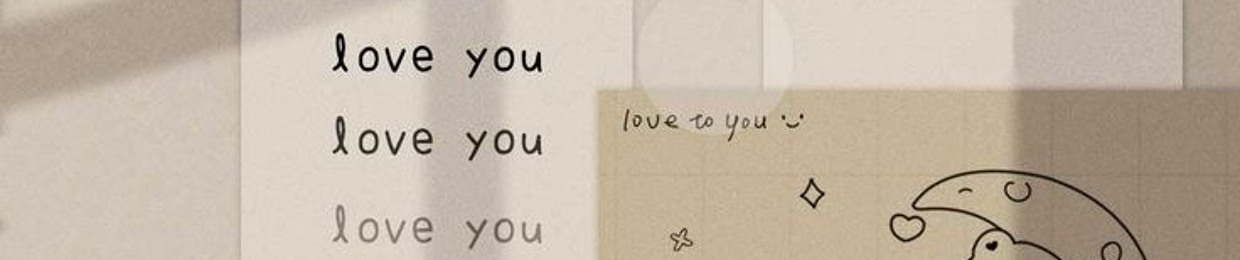 love you
love you
love you
love to you